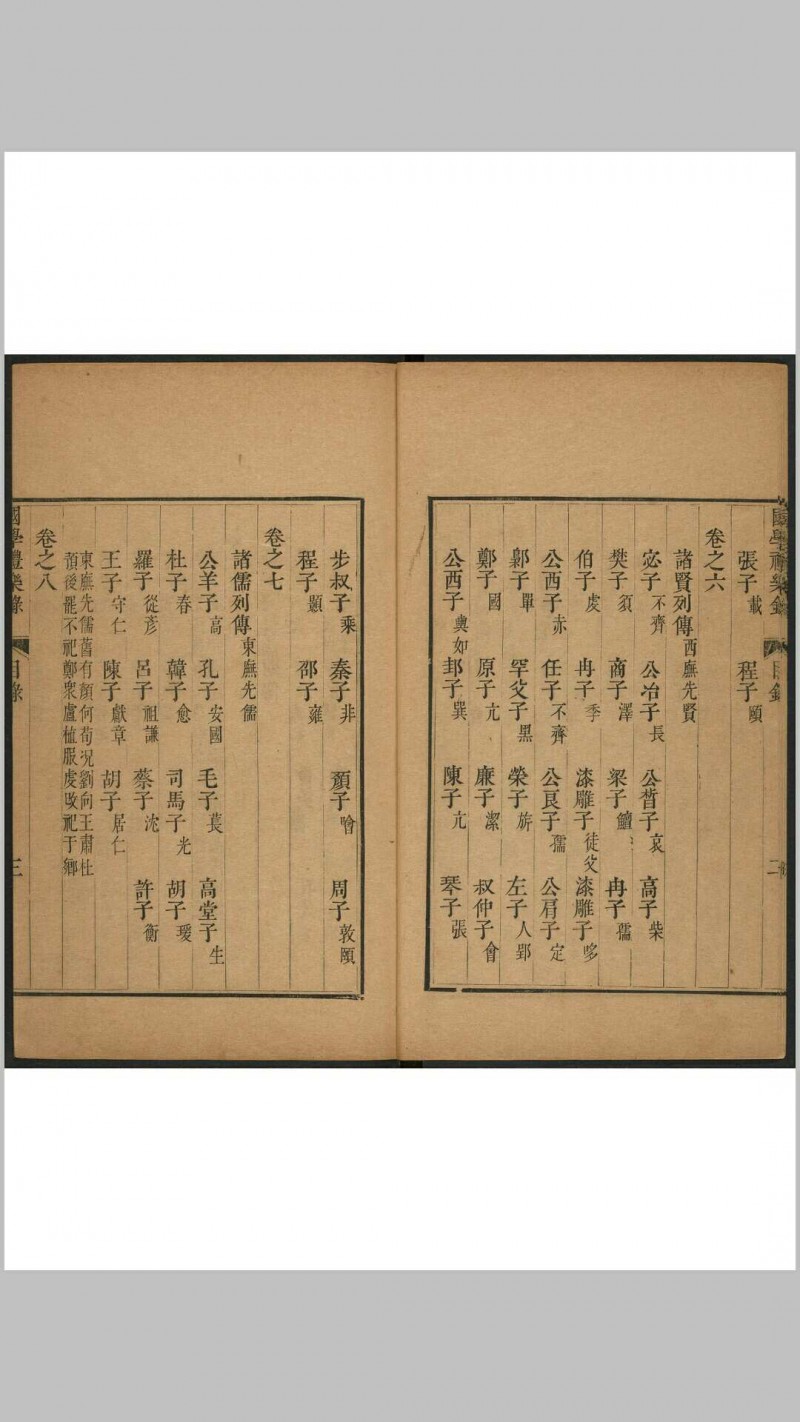 國學禮樂錄 目錄 二
張子載 程子頤
卷之六
諸賢列傳西廡先賢
宓子不齊 公冶子長 公晳子哀 高子柴
樊子須 商子澤 梁子鱣 冉子孺
伯子虔 冉子季 漆雕子徒父 漆雕子哆
公西子赤 任子不齊 公良子孺 公肩子定
鄡子單 罕父子黑 榮子旂 左子人郢
鄭子國 原子亢 廉子潔 叔仲子會
公西子輿如 邽子巽 陳子亢 琴子張
步叔子乘 秦子非 顏子噲 周子敦頤
程子顥 邵子雍
卷之七
諸儒列傳東廡先儒
公羊子高 孔子安國 毛子萇 高堂子生
杜子春 韓子愈 司馬子光 胡子瑗
羅子從彥 呂子祖謙 蔡子沈 許子衡
王子守仁 陳子獻章 胡子居仁
東廡先儒舊有顏何荀況劉向王肅杜
預後罷不祀鄭衆盧植服虔改祀于鄉
卷之八
國學禮樂錄 目錄 三